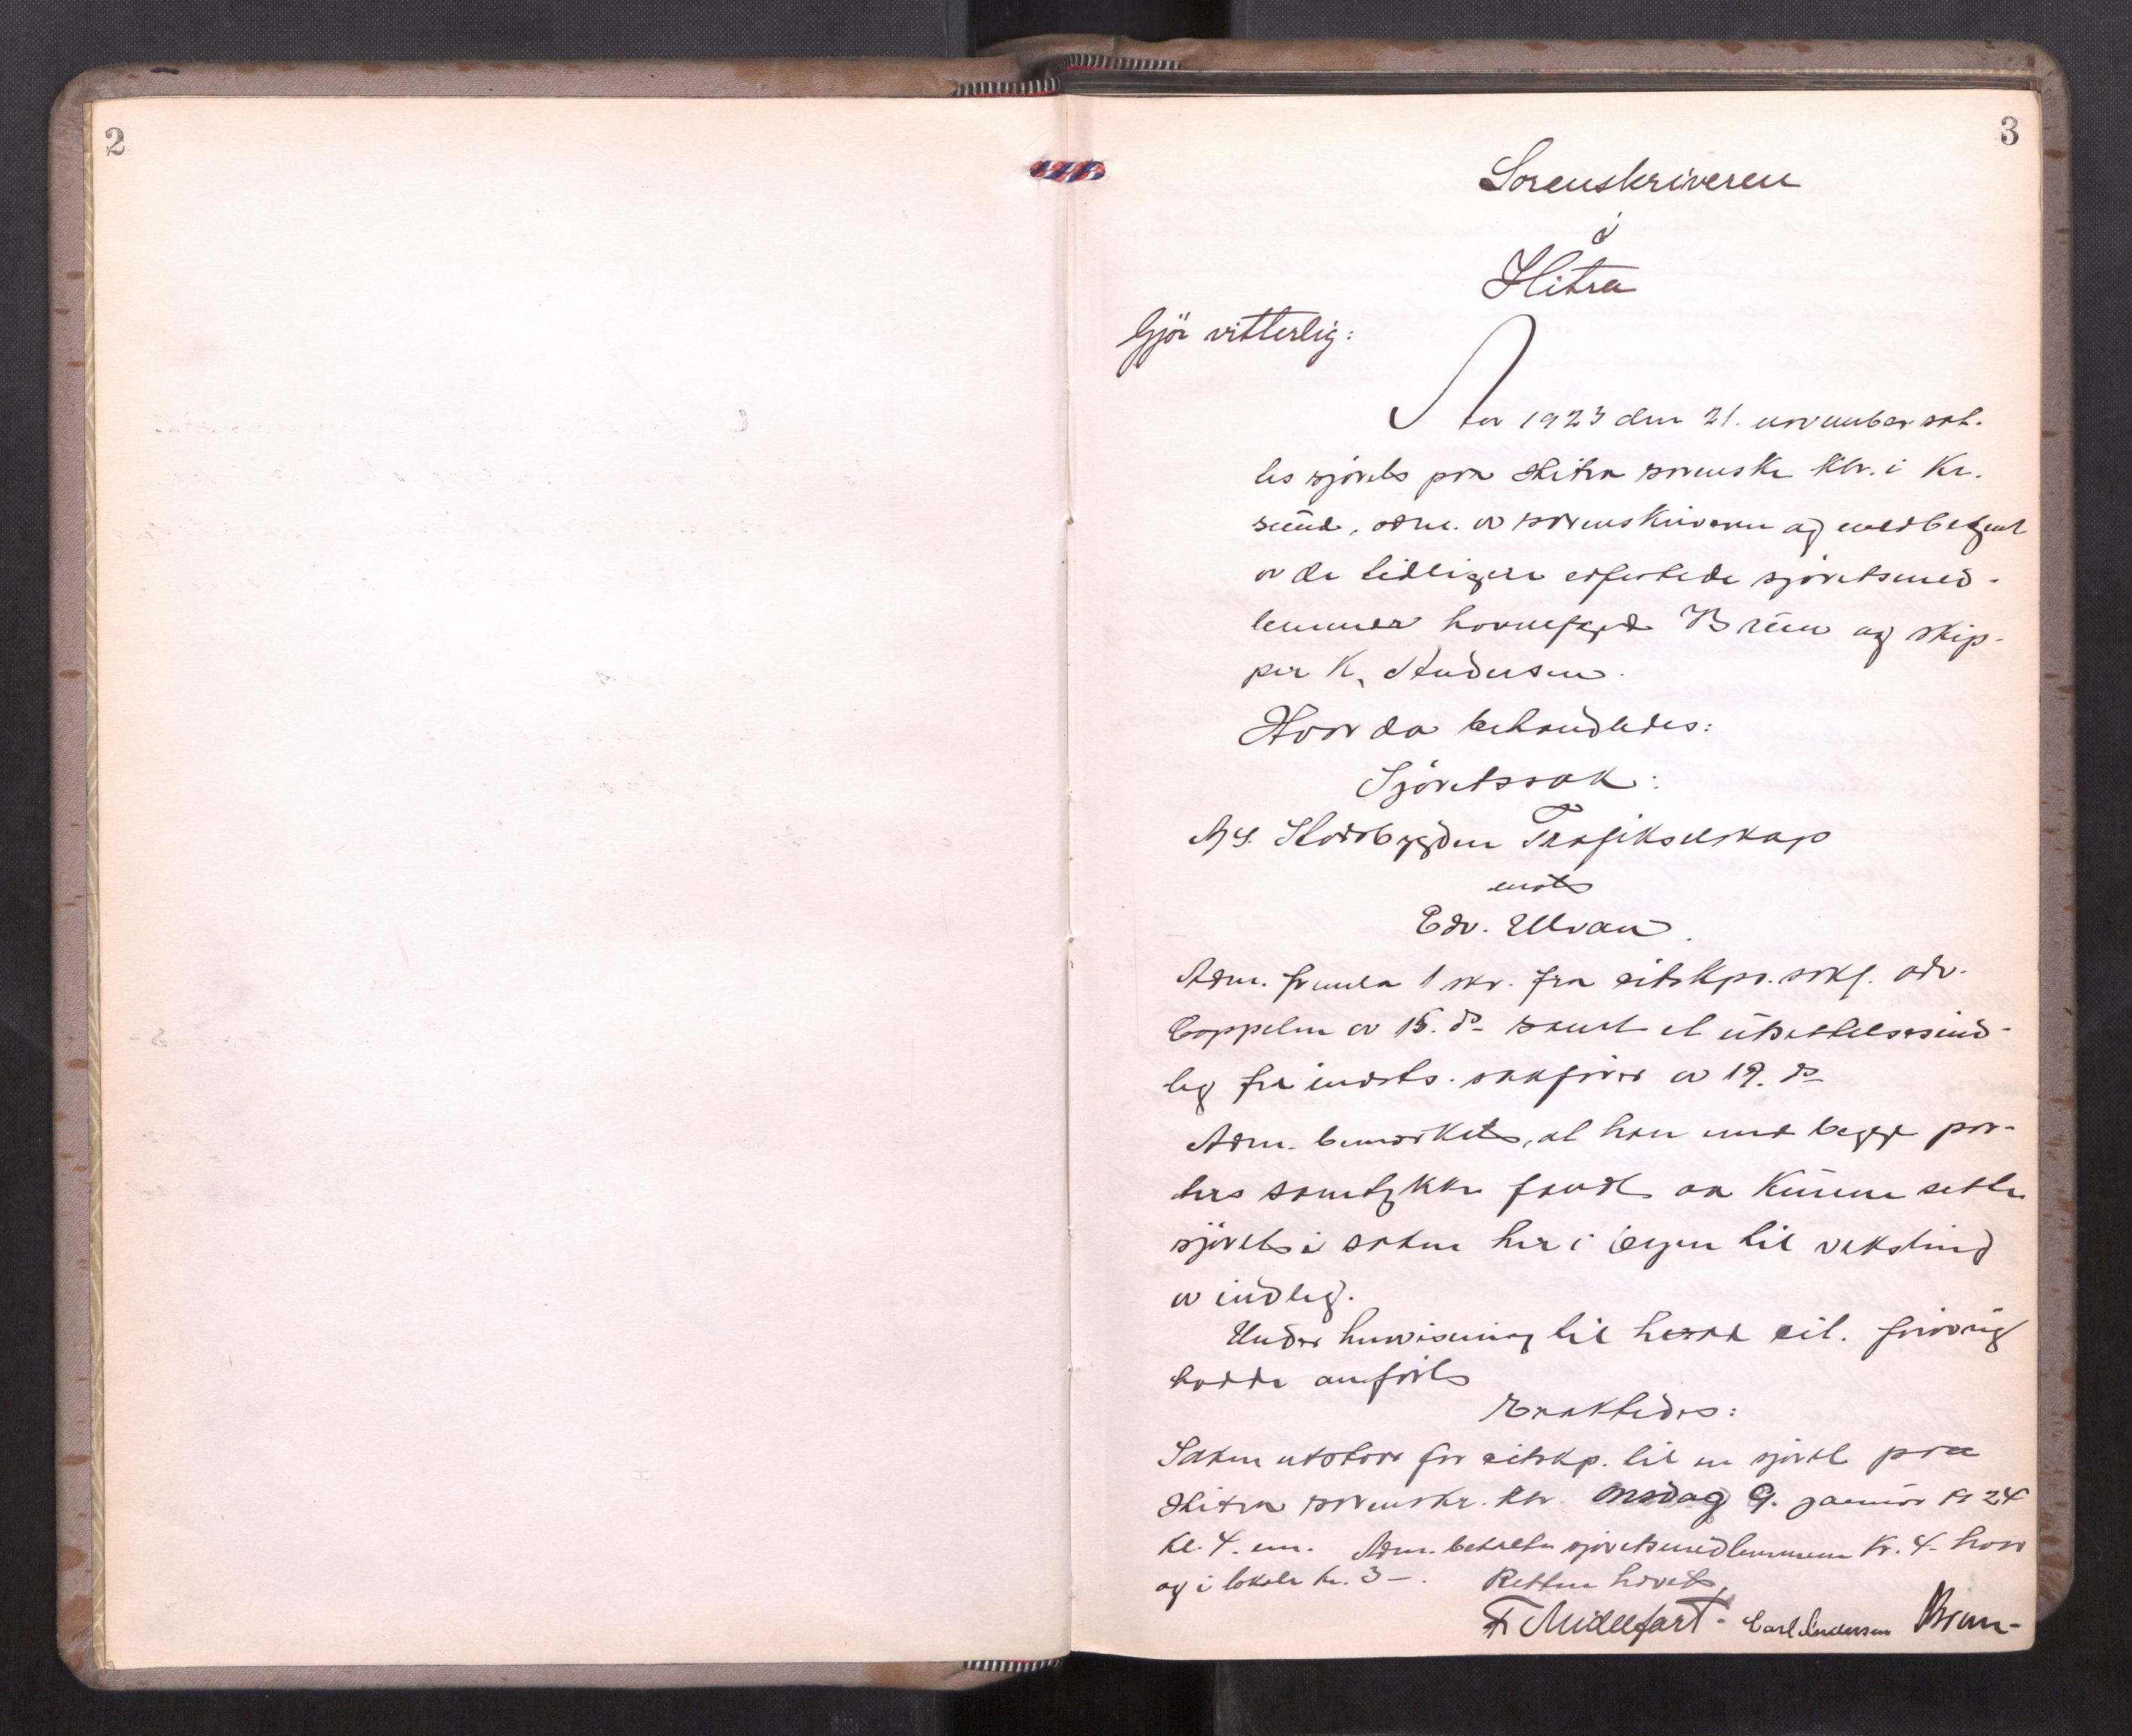 2
3
Sorenskriveren
i
Hitra
Gjör vitterlig:
Aar 1923 den 21. november sat-
tes sjöret paa Hitra sorenskr. ktr. i Kr.
sund, adm. av sorenskriveren og medbetjent
av de tidligere edfestede sjöretsmed-
lemmer havnefogd Bruun og skip-
per K. Andersen.
Hvor da behandledes:
Sjöretssak:
A/S. Stadsbygden Trafikselskap
mot
Edv. Ulvan.
Adm. fremla 1 skr. fra citskps. sakf. adv.
Coppelen av 15. ds samt et utsettelsesind-
leg fra indst. sakförer av 19. ds
Adm. bemerket, at han med begge par-
ters samtykke fandt aa kunne sette
sjöret i saken her i byen til veksling
av indleg.
Under henvisning til hvad cit. forövrig
hadde anfört
Eraktedes:
Saken utstaar for citskp. til en sjöret paa
Hitra sorenskr. ktr. Onsdag 9. januar 1924
kl. 4. em. Adm. betalte sjöretsmedlemmene kr. 4- hver
og i lokale kr. 3-. Retten hævet,
F Midelfart- Carl Andersen Bruun-